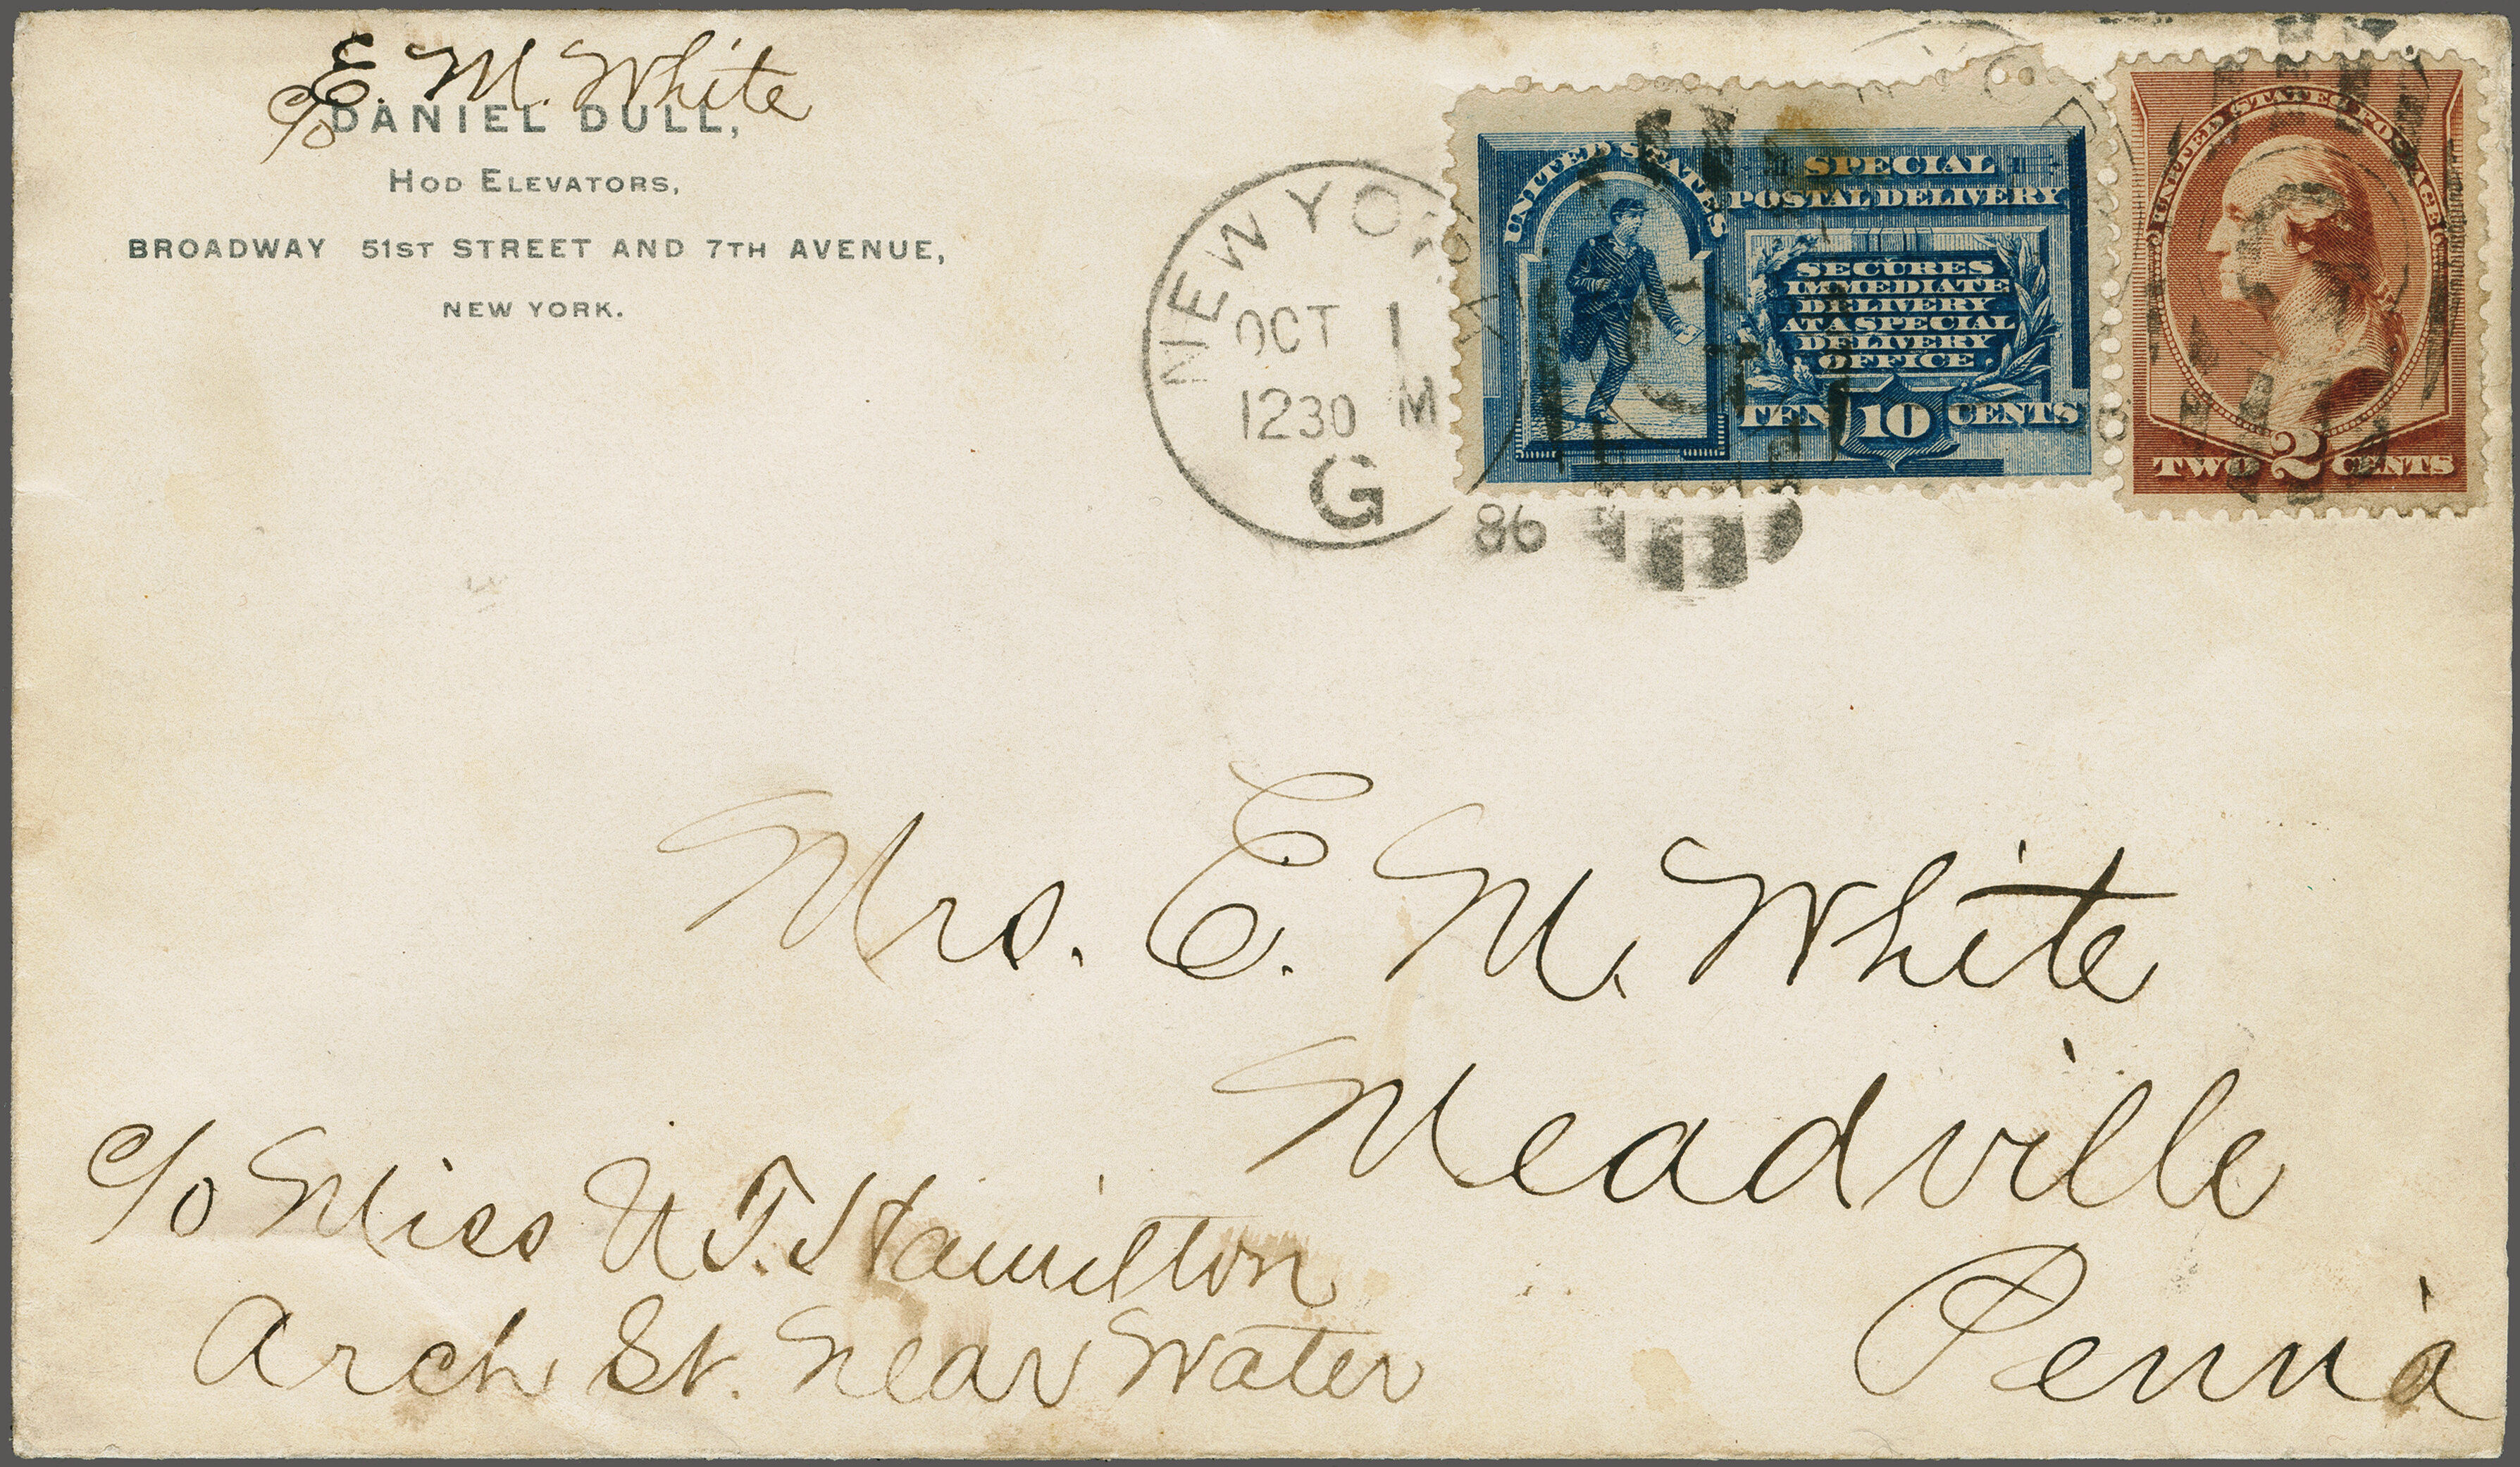 E. M. White
c/o DANIEL DULL,
HOD ELEVATORS,
BROADWAY 51ST STREET AND 7TH AVENUE,
NEW YORK.
NEW YORK
OCT 1
1230 M
G
86
UNITED STATES
SPECIAL
POSTAL DELIVERY
SECURES
IMMEDIATE
DELIVERY
AT A SPECIAL
DELIVERY
OFFICE.
TEN 10 CENTS
UNITED STATES POSTAGE
TWO 2 CENTS
Mrs. E. M. White
Meadville
Penn'a
c/o Miss N. T. Hamilton
Arch St. Near Water